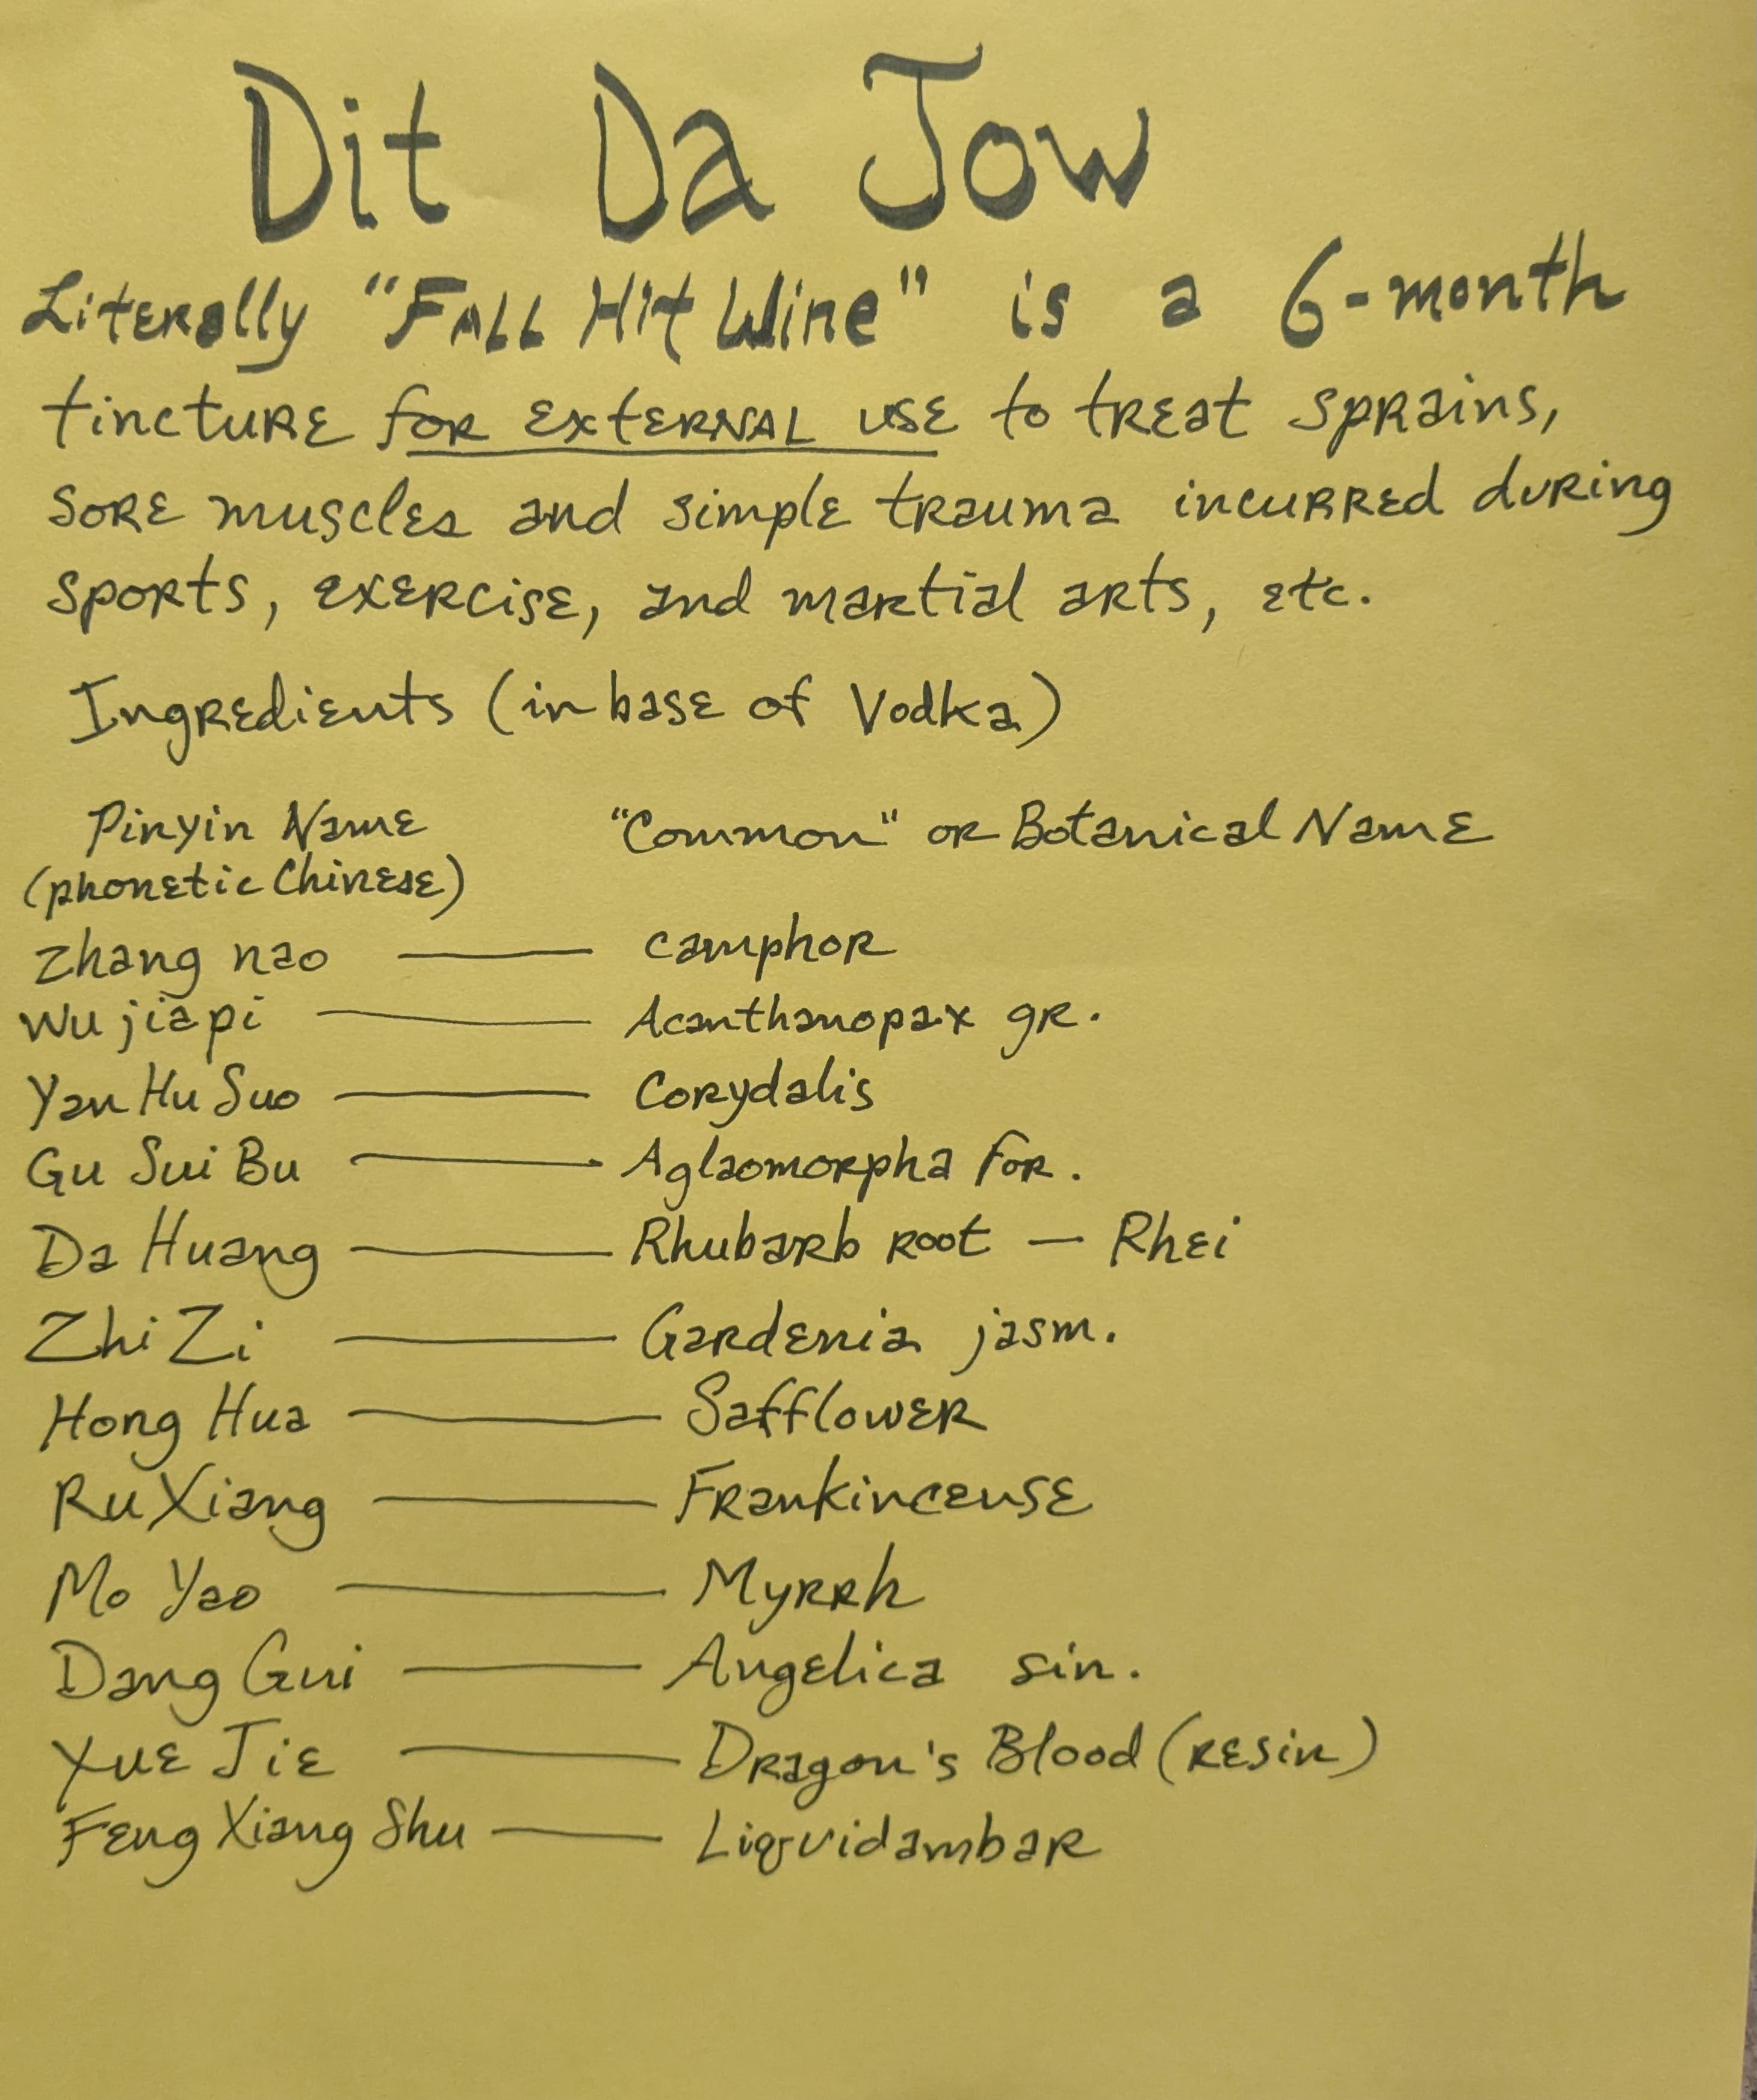 Dit Da Jow
Literally "Fall Hit Wine" is a 6-month
tincture for external use to treat sprains,
sore muscles and simple trauma incurred during
sports, exercise, and martial arts, etc.
Ingredients (in base of Vodka)
Pinyin Name "Common" or Botanical Name
(phonetic Chinese)
Zhang nao — camphor
Wu jiapi — Acanthanopax gr.
Yan Hu Suo — Corydalis
Gu Sui Bu — Aglaomorpha For.
Da Huang — Rhubarb root — Rhei
Zhi Zi — Gardenia jasm.
Hong Hua — Safflower
Ru Xiang — Frankincense
Mo Yao — Myrrh
Dang Gui — Angelica sin.
Xue Jie — Dragon's Blood (resin)
Feng Xiang Shu — Liqvidambar